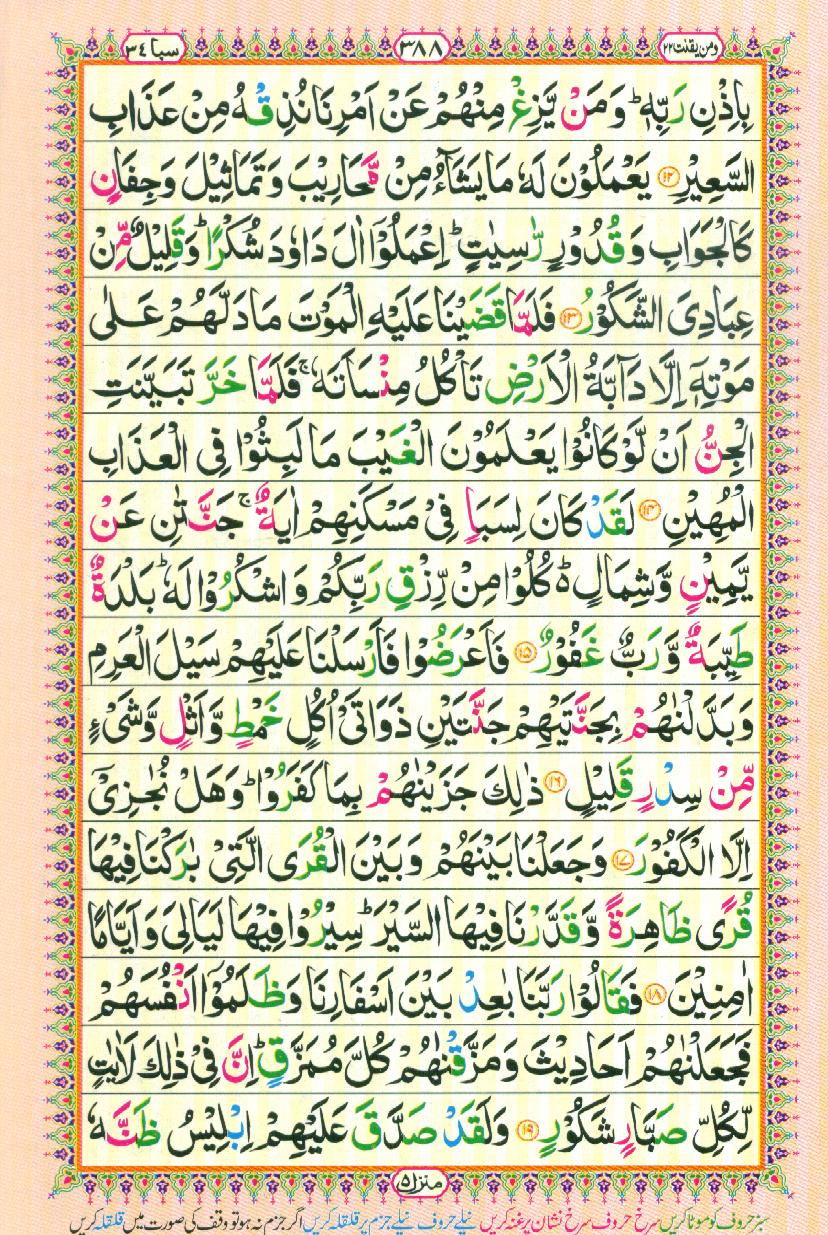 ومن يقنت ٢٢ ٣٨٨ سبا ٣٤
بِاِذْنِ رَبِّهٖ ؕ وَ مَنْ يَّزِغْ مِنْهُمْ عَنْ اَمْرِنَا نُذِقْهُ مِنْ عَذَابِ
السَّعِيْرِ ۝۱۲ يَعْمَلُوْنَ لَهٗ مَا يَشَآءُ مِنْ مَّحَارِيْبَ وَ تَمَاثِيْلَ وَ جِفَانٍ
كَالْجَوَابِ وَ قُدُوْرٍ رّٰسِيٰتٍ ؕ اِعْمَلُوْۤا اٰلَ دَاوٗدَ شُكْرًا ؕ وَ قَلِيْلٌ مِّنْ
عِبَادِيَ الشَّكُوْرُ ۝۱۳ فَلَمَّا قَضَيْنَا عَلَيْهِ الْمَوْتَ مَا دَلَّهُمْ عَلٰى
مَوْتِهٖۤ اِلَّا دَآبَّةُ الْاَرْضِ تَاْكُلُ مِنْسَاَتَهٗ ۚ فَلَمَّا خَرَّ تَبَيَّنَتِ
الْجِنُّ اَنْ لَّوْ كَانُوْا يَعْلَمُوْنَ الْغَيْبَ مَا لَبِثُوْا فِى الْعَذَابِ
الْمُهِيْنِ ۝۱۴ لَقَدْ كَانَ لِسَبَاٍ فِىْ مَسْكَنِهِمْ اٰيَةٌ ۚ جَنَّتٰنِ عَنْ
يَّمِيْنٍ وَّ شِمَالٍ ؕ۬ كُلُوْا مِنْ رِّزْقِ رَبِّكُمْ وَ اشْكُرُوْا لَهٗ ؕ بَلْدَةٌ
طَيِّبَةٌ وَّ رَبٌّ غَفُوْرٌ ۝۱۵ فَاَعْرَضُوْا فَاَرْسَلْنَا عَلَيْهِمْ سَيْلَ الْعَرِمِ
وَ بَدَّلْنٰهُمْ بِجَنَّتَيْهِمْ جَنَّتَيْنِ ذَوَاتَىْ اُكُلٍ خَمْطٍ وَّ اَثْلٍ وَّ شَىْءٍ
مِّنْ سِدْرٍ قَلِيْلٍ ۝۱۶ ذٰلِكَ جَزَيْنٰهُمْ بِمَا كَفَرُوْا ؕ وَ هَلْ نُجٰزِىْۤ
اِلَّا الْكَفُوْرَ ۝۱۷ وَ جَعَلْنَا بَيْنَهُمْ وَ بَيْنَ الْقُرَى الَّتِىْ بٰرَكْنَا فِيْهَا
قُرًى ظَاهِرَةً وَّ قَدَّرْنَا فِيْهَا السَّيْرَ ؕ سِيْرُوْا فِيْهَا لَيَالِىَ وَ اَيَّامًا
اٰمِنِيْنَ ۝۱۸ فَقَالُوْا رَبَّنَا بٰعِدْ بَيْنَ اَسْفَارِنَا وَ ظَلَمُوْۤا اَنْفُسَهُمْ
فَجَعَلْنٰهُمْ اَحَادِيْثَ وَ مَزَّقْنٰهُمْ كُلَّ مُمَزَّقٍ ؕ اِنَّ فِىْ ذٰلِكَ لَاٰيٰتٍ
لِّكُلِّ صَبَّارٍ شَكُوْرٍ ۝۱۹ وَ لَقَدْ صَدَّقَ عَلَيْهِمْ اِبْلِيْسُ ظَنَّهٗ
منزل ۵
سبز حروف کو موٹا کریں سرخ حروف سرخ نشان پر غنہ کریں نیلے حروف نیلے جزم پر قلقلہ کریں اگر جزم نہ ہو تو وقف کی صورت میں قلقلہ کریں